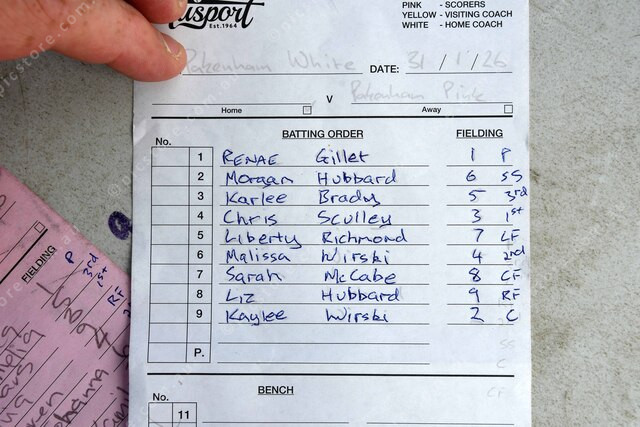 Est.1964
PINK - SCORERS
YELLOW - VISITING COACH
WHITE - HOME COACH
Pakenham White DATE: 31 / 1 / 26
V Pakenham Pink
Home Away
No. BATTING ORDER FIELDING
1 RENAE Gillet 1 P
2 Morgan Hubbard 6 SS
3 Karlee Brady 5 3rd
4 Chris Sculley 3 1st
5 Liberty Richmond 7 LF
6 Malissa Wirski 4 2nd
7 Sarah McCabe 8 CF
8 Liz Hubbard 9 RF
9 Kaylee Wirski 2 C
SS
P. C
BENCH CF
No.
11
FIELDING
P
3rd
1st
RF